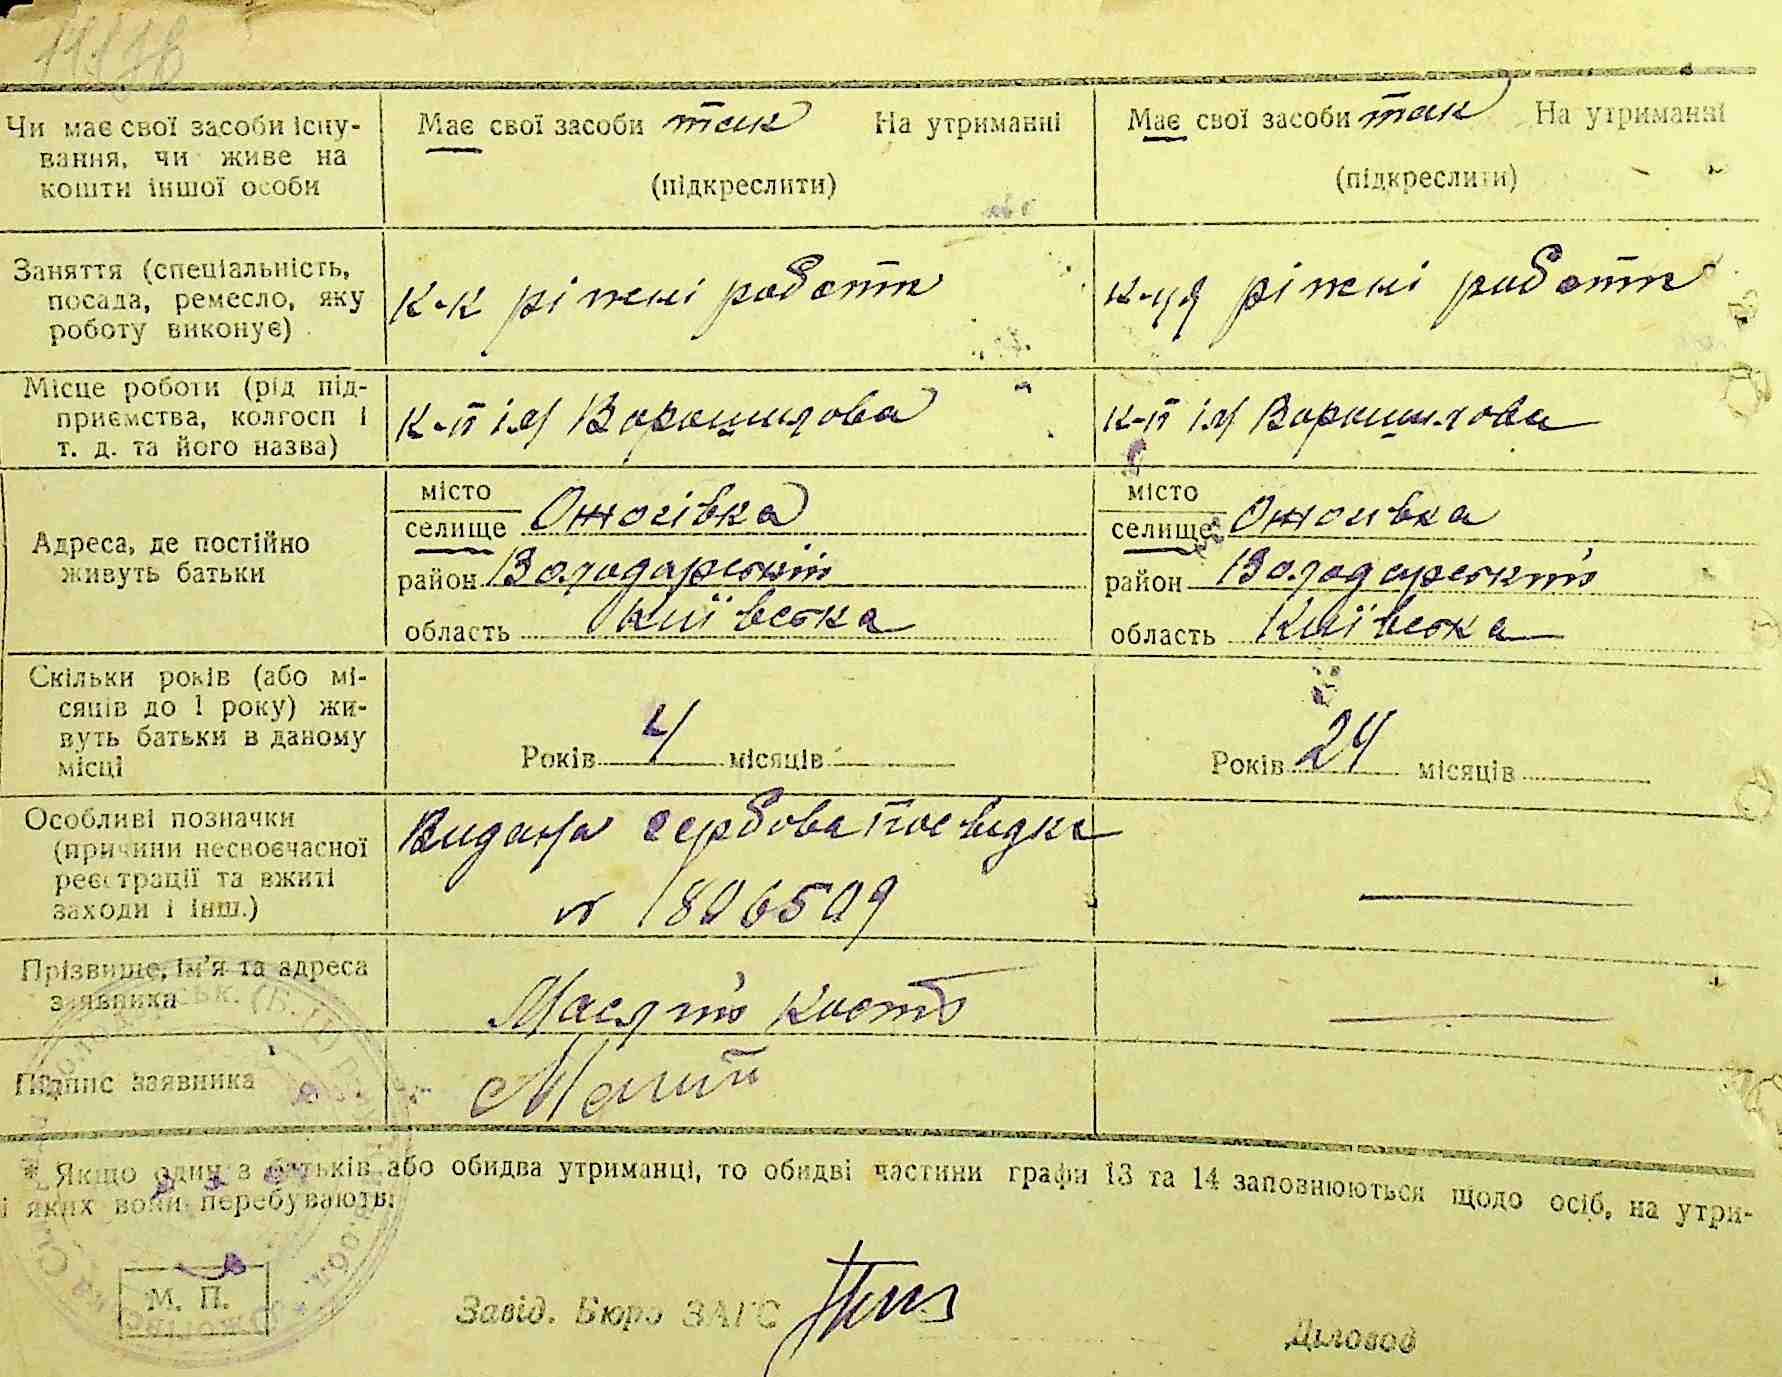 Чи має свої засоби існу-
вання, чи живе на
кошти іншої особи
Має свої засоби так На утриманні
(підкреслити)
Має свої засоби так На утриманні
(підкреслити)
Заняття (спеціальність,
посада, ремесло, яку
роботу виконує)
к-к ріжні роботи
к-ця ріжні роботи
Місце роботи (рід під-
приємства, колгосп і
т. д. та його назва)
к-п ім Ворошилова
к-п ім Ворошилова
Адреса, де постійно
живуть батьки
місто
селище Ожогівка
район Володарський
область Київська
місто
селище Ожогівка
район Володарський
область Київська
Скільки років (або мі-
сяців до 1 року) жи-
вуть батьки в даному
місці
Років 4 місяців
Років 24 місяців
Особливі позначки
(причини несвоєчасної
реєстрації та вжиті
заходи і інш.)
Видана гербова посвідка
№ 1806509
Прізвище, ім'я та адреса
заявника
Кость
Підпис заявника
* Якщо один з батьків або обидва утриманці, то обидві частини графи 13 та 14 заповнюються щодо осіб, на утри-
і яких вони перебувають.
М. П.
Завід. Бюро ЗАГС
Діловод